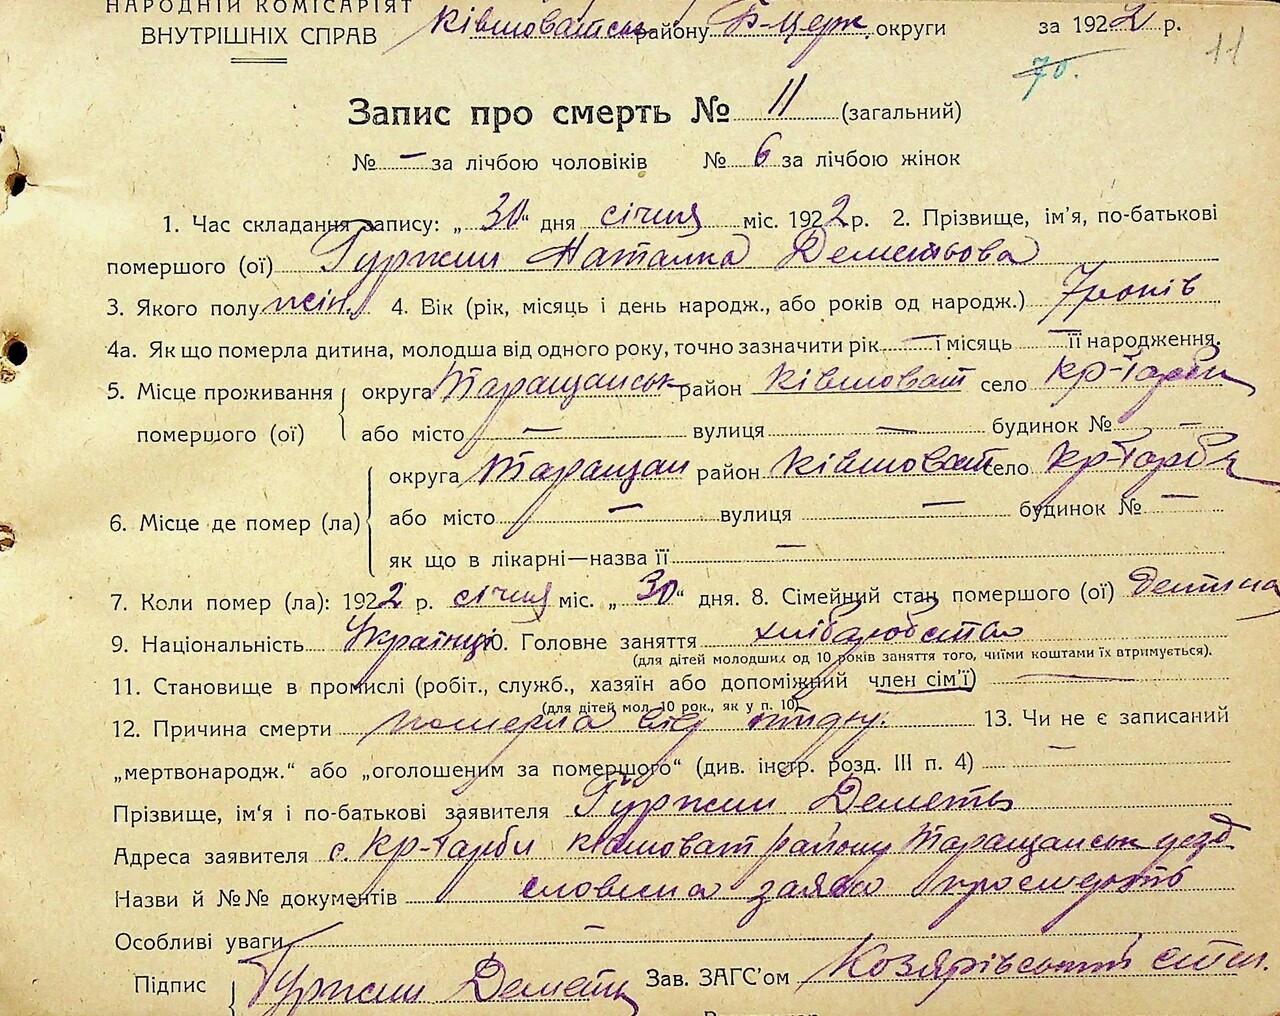 НАРОДНІЙ КОМІСАРІЯТ
ВНУТРІШНІХ СПРАВ
Ківшоватськ району Б-Церк. округи за 1922 р. 11
70.
Запис про смерть № 11 (загальний)
№ — за лічбою чоловіків № 6 за лічбою жінок
1. Час складання запису: „ 30 “ дня січня міс. 1922 р. 2. Прізвище, ім'я, по-батькові
помершого (ої) Гуржин Наталка Деметьова
3. Якого полу жін. 4. Вік (рік, місяць і день народж., або років од народж.) 7 років
4а. Як що померла дитина, молодша від одного року, точно зазначити рік — і місяць — її народження.
5. Місце проживання округа Таращанськ район Ківшоват село Кр-Гарби
помершого (ої) або місто — вулиця — будинок № —
округа Таращан район Ківшоват село Кр-Гарби
6. Місце де помер (ла) або місто — вулиця — будинок № —
як що в лікарні—назва її —
7. Коли помер (ла): 1922 р. січня міс. „ 30 “ дня. 8. Сімейний стан помершого (ої) детина
9. Національність Українці 10. Головне заняття хлібаробство
(для дітей молодших од 10 років заняття того, чиїми коштами їх втримується).
11. Становище в промислі (робіт., служб., хазяїн або допоміжний член сім'ї) —
(для дітей мол. 10 рок., як у п. 10)
12. Причина смерти померла від 13. Чи не є записаний
„мертвонародж.“ або „оголошеним за помершого“ (див. інстр. розд. III п. 4) —
Прізвище, ім'я і по-батькові заявителя Гуржин Деметь
Адреса заявителя с. Кр-Гарби Ківшоват району Таращанськ уезд
Назви й №№ документів словесна заява просмерть
Особливі уваги —
Підпис Гуржин Деметь Зав. ЗАГС'ом